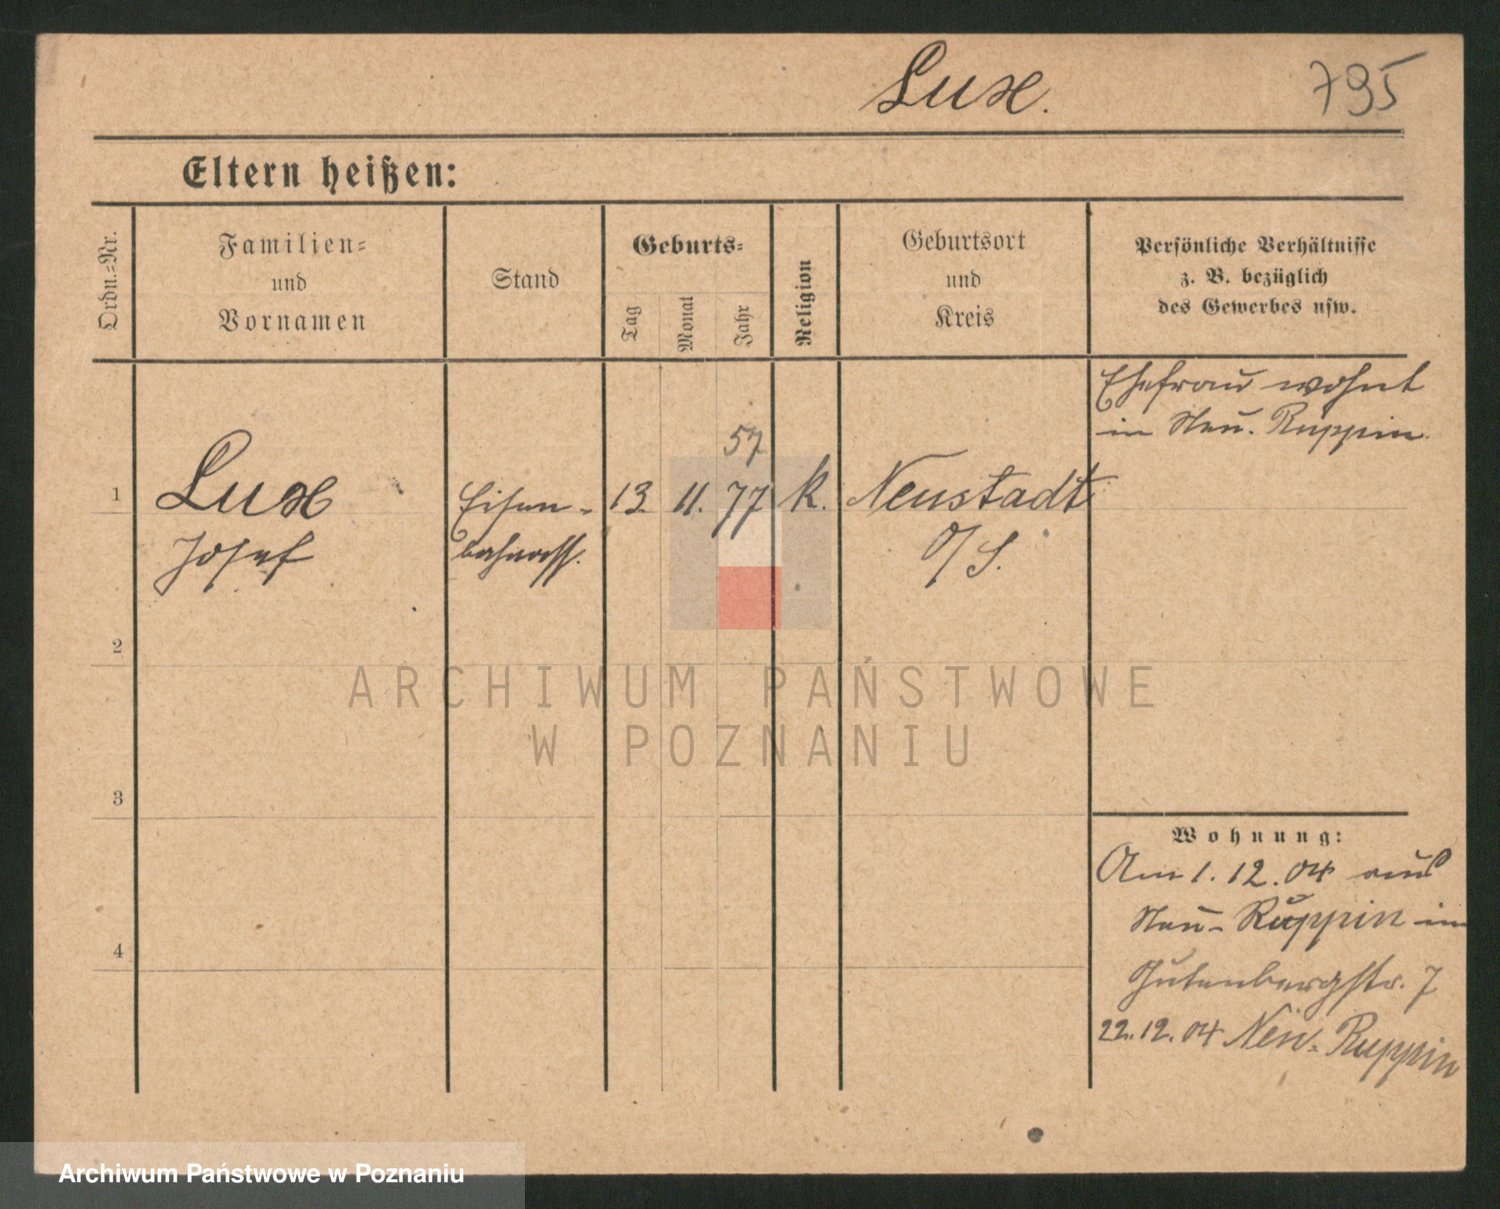 Lux.
795
Eltern heißen:
Ordn.=Nr.
Familien=
und
Vornamen
Stand
Geburts=
Tag
Monat
Jahr
Religion
Geburtsort
und
Kreis
Persönliche Verhältnisse
z. B. bezüglich
des Gewerbes usw.
Ehefrau wohnt
in Neu-Ruppin
57
1 Lux Eisen- 13. 11. 77 k. Neustadt
Josef bahnass. O/S.
2
3
4
Wohnung:
Am 1. 12. 04 aus
Neu-Ruppin in
Gutenbergstr. 7
22.12.04 Neu-Ruppin
ARCHIWUM PAŃSTWOWE
W POZNANIU
Archiwum Państwowe w Poznaniu